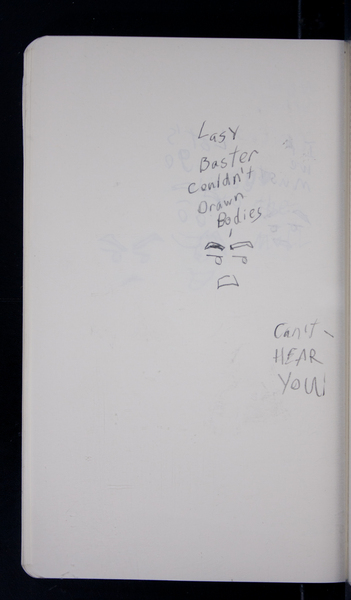 Lasy
Baster
Couldn't
Drawn
Bodies
Can't
HEAR
YOU